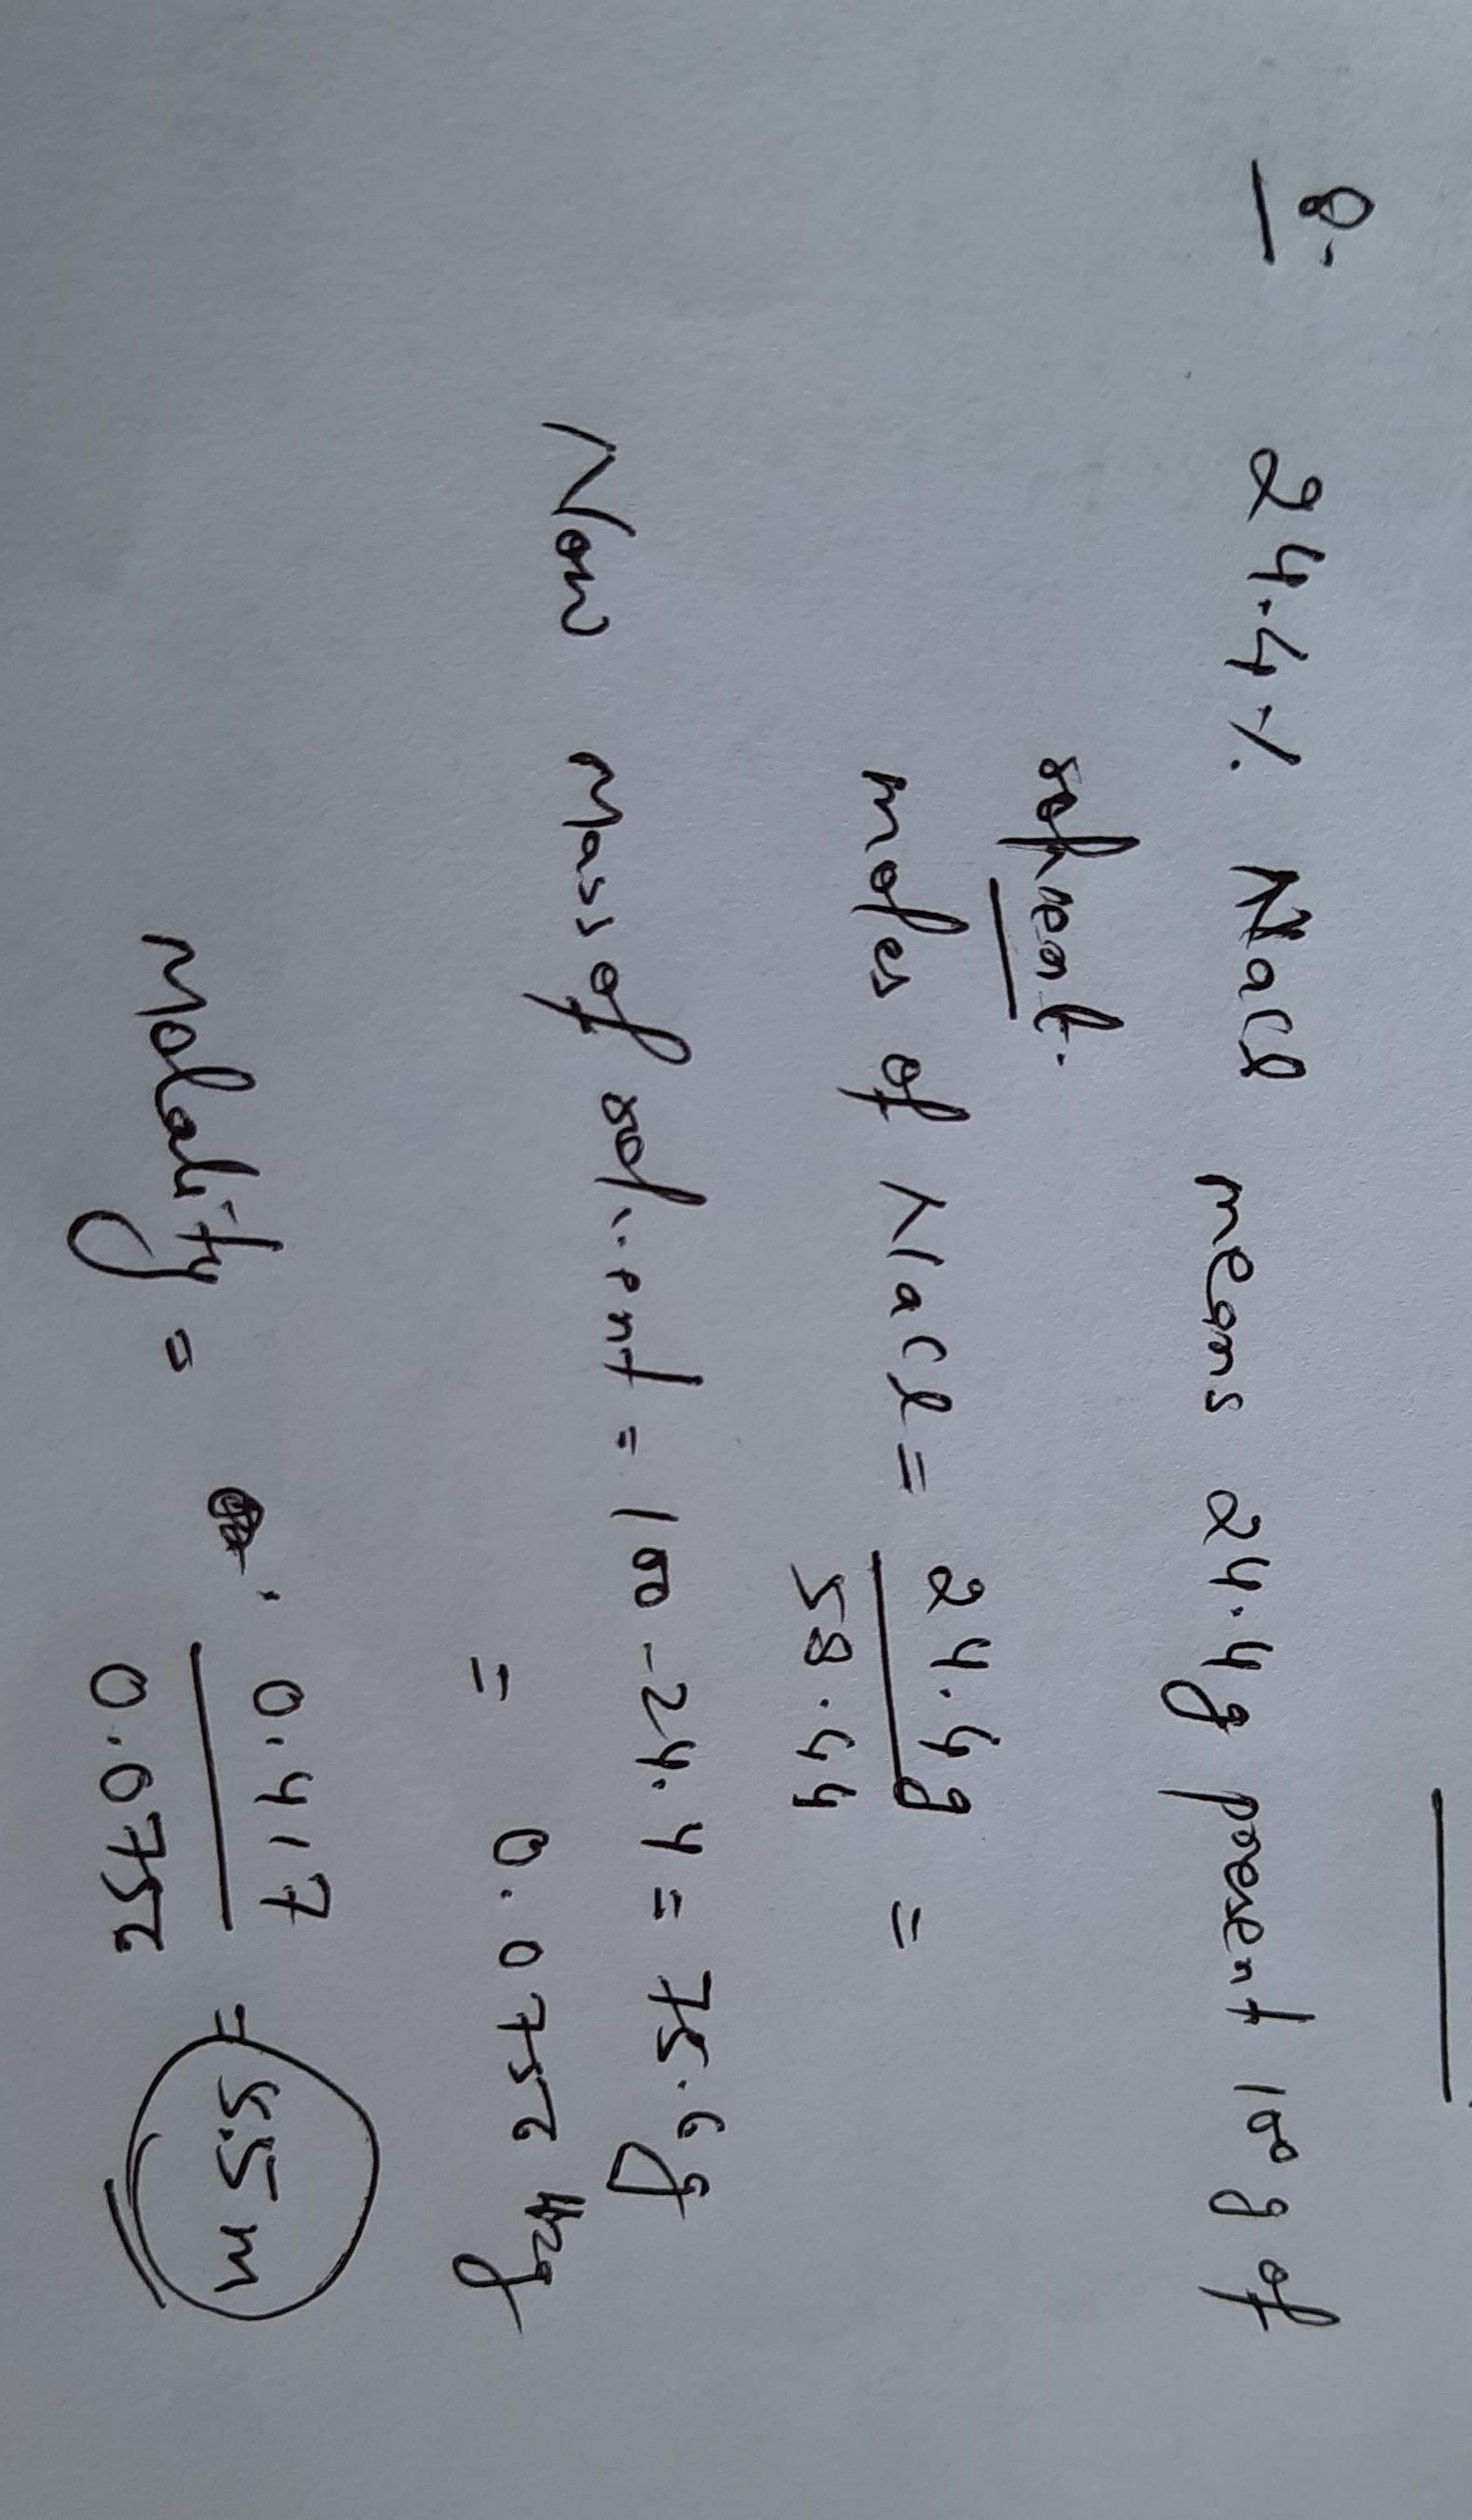 8.
24.4% Nacl means 24.4g present 100 g of
solvent.
moles of Nacl = 24.4g =
58.44
Now Mass of solvent = 100 - 24.4 = 75.6g
= 0.0752 kg
Molality = 0.417 = 5.5 m
0.0752